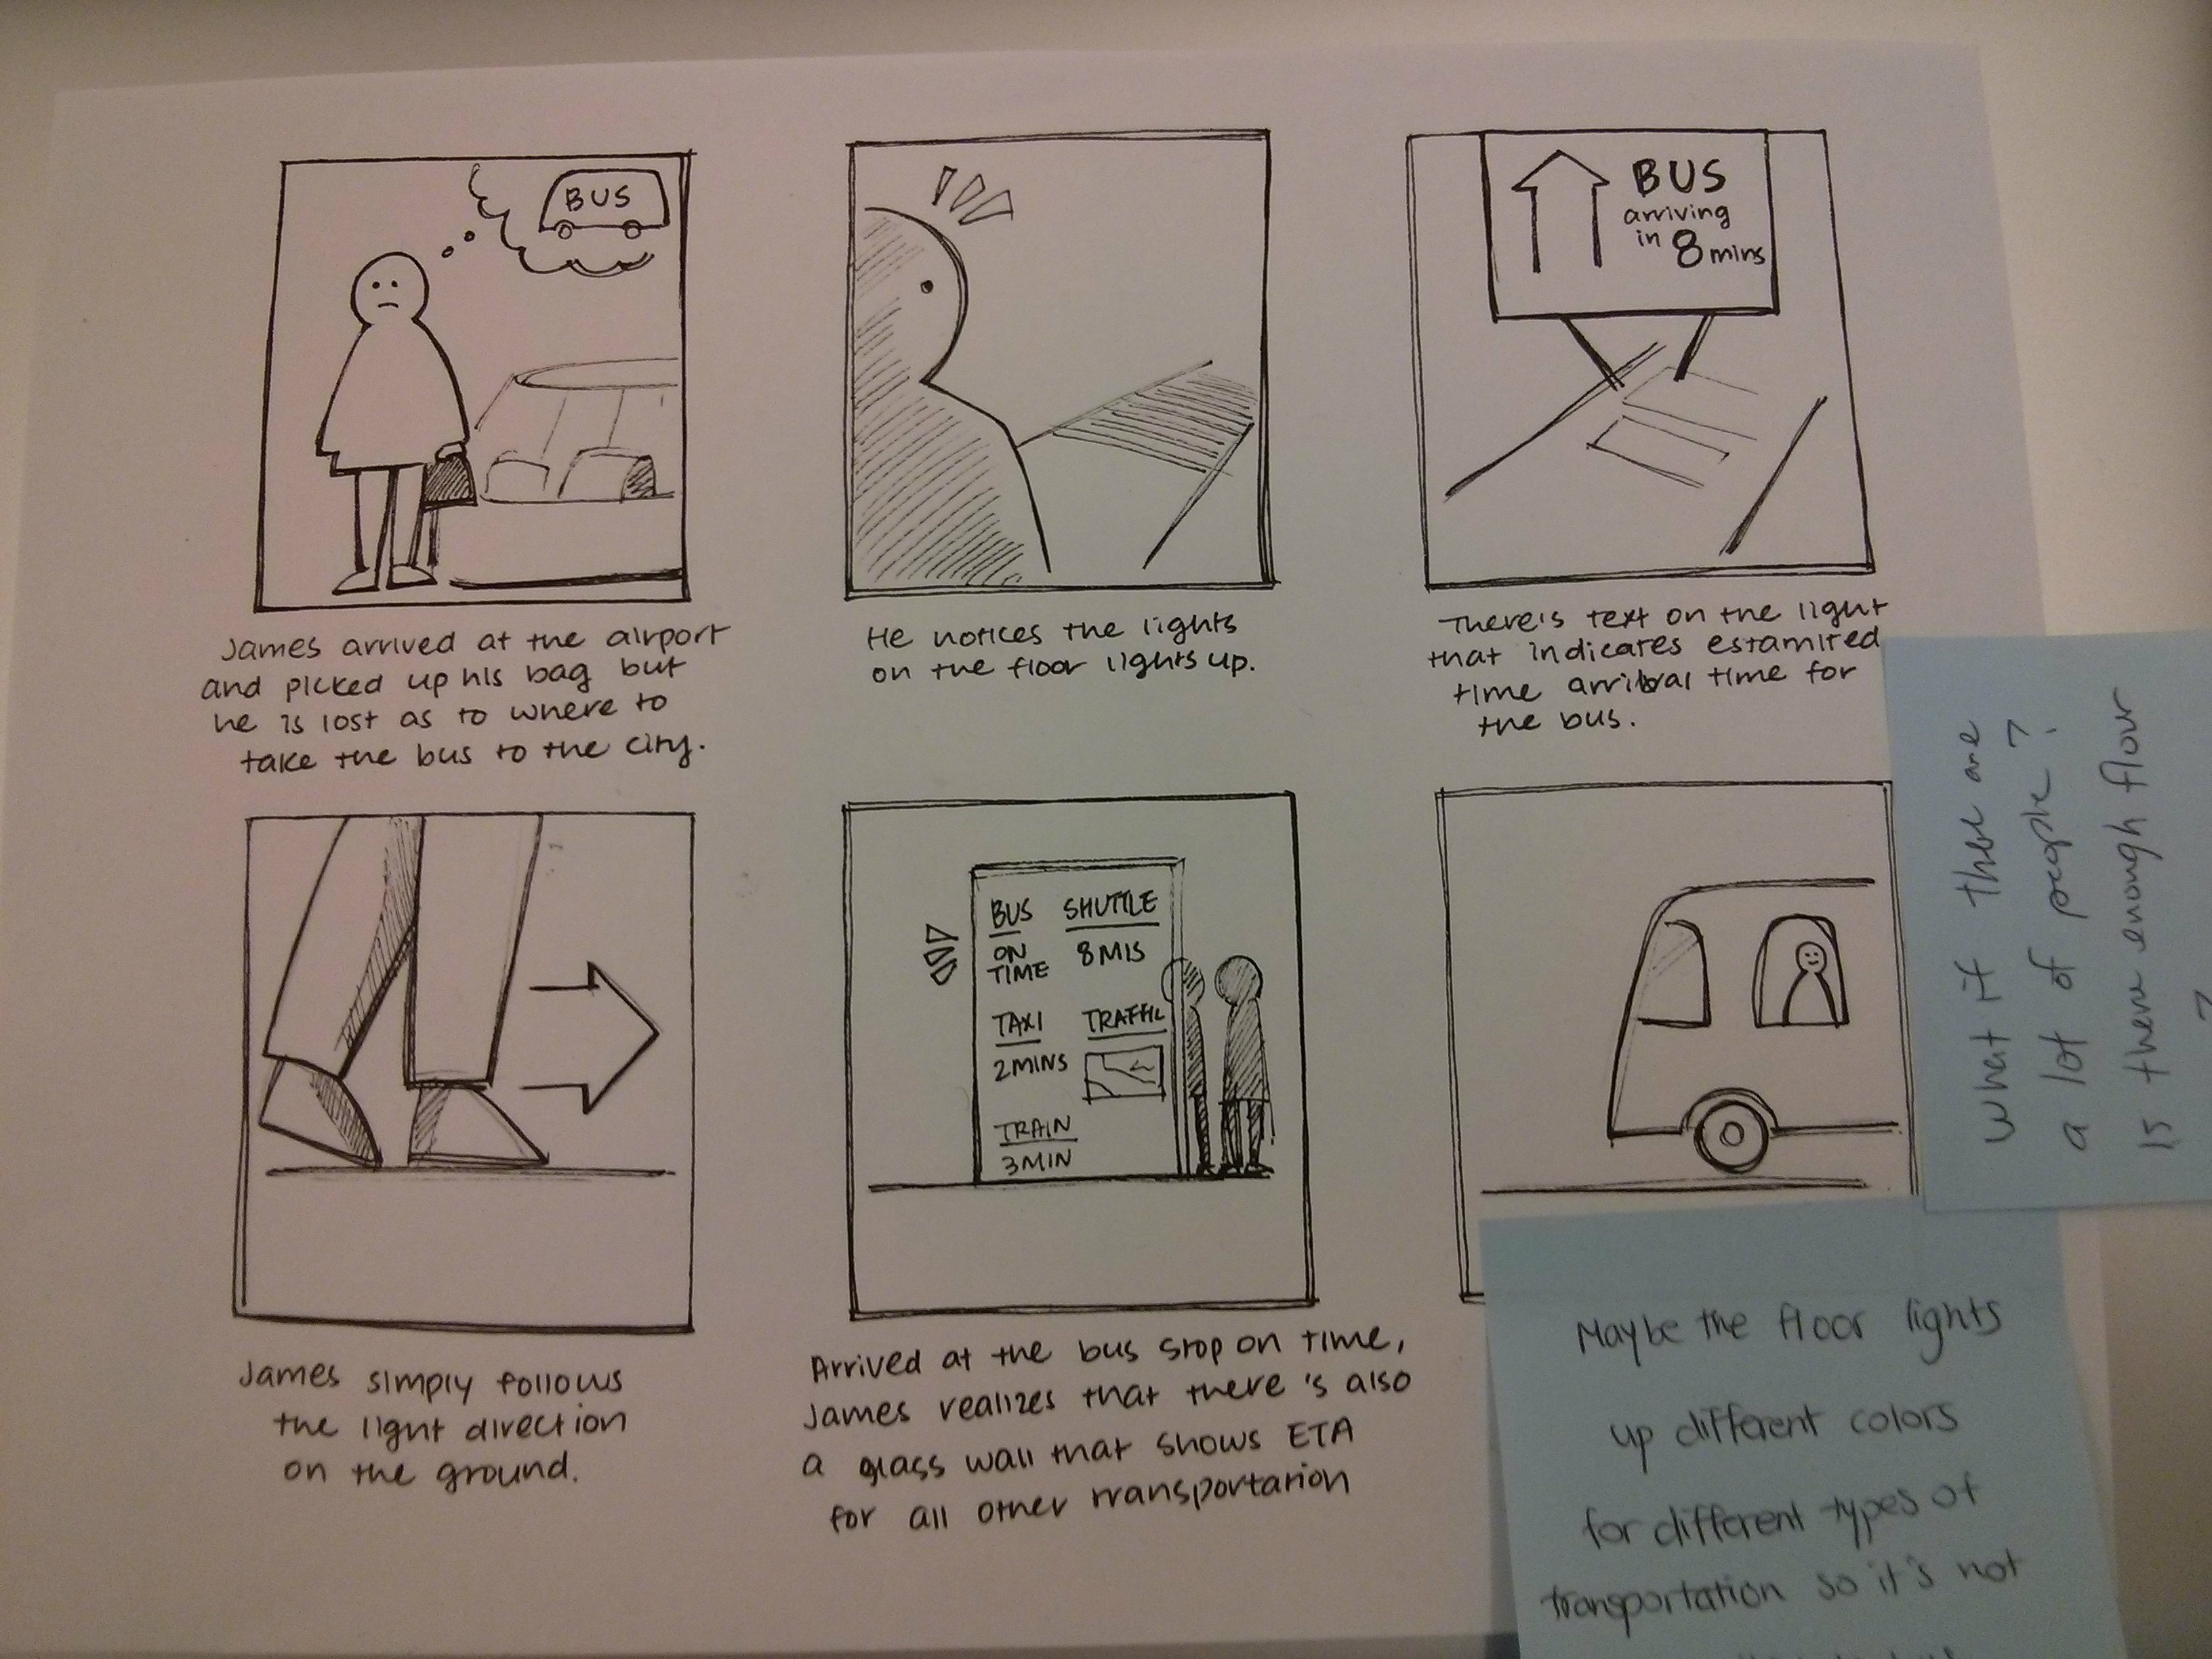 BUS
James arrived at the airport
and picked up his bag but
he is lost as to where to
take the bus to the city.
He notices the lights
on the floor lights up.
BUS
arriving
in 8 mins
There's text on the light
that indicates estamited
time arrival time for
the bus.
James simply follows
the light direction
on the ground.
BUS SHUTTLE
ON
TIME 8 MIS
TAXI TRAFFIC
2 MINS
TRAIN
3 MIN
Arrived at the bus stop on time,
James realizes that there's also
a glass wall that shows ETA
for all other transportation
What if there are
a lot of people?
Is there enough floor
?
Maybe the floor lights
up different colors
for different types of
transportation so it's not